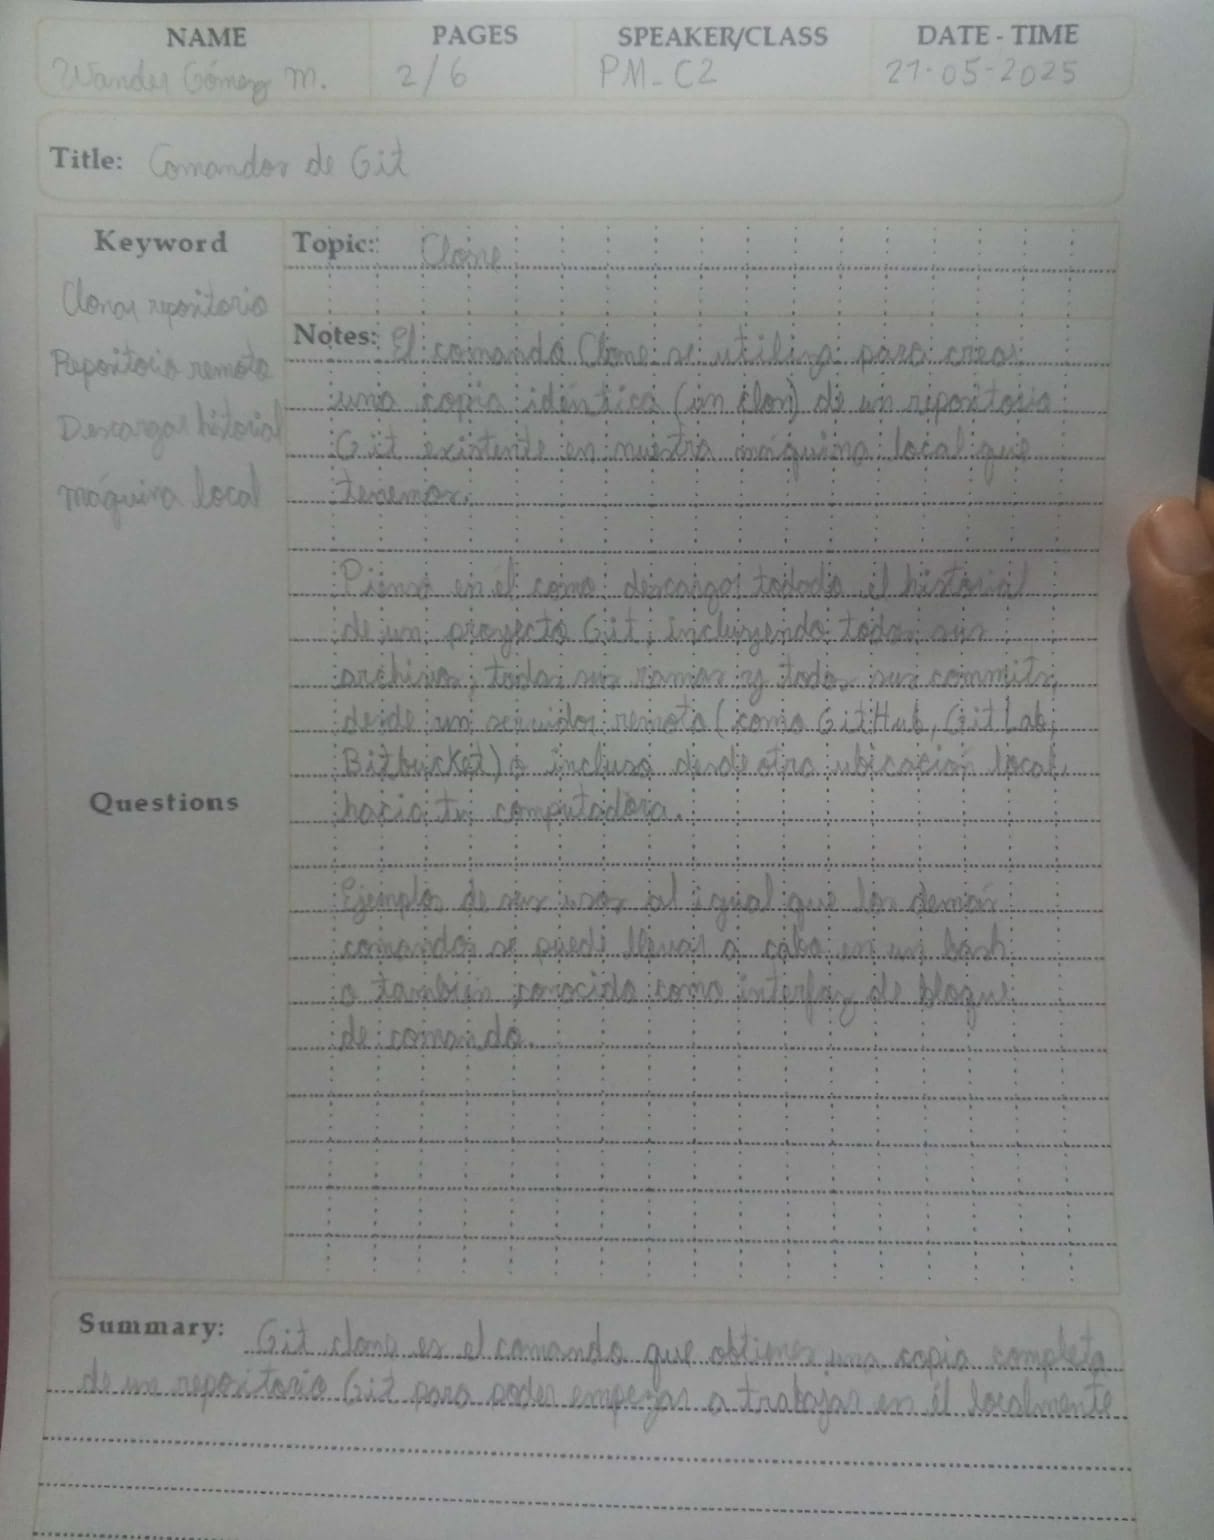 NAME
PAGES
SPEAKER/CLASS
DATE - TIME
Wander Gómez M.
2/6
PM-C2
21-05-2025
Title: Comandos de Git
Keyword
Clonar repositorio
Repositorio remoto
Descargar historial
máquina local
Questions
Topic: Clone
Notes: El comando Clone se utiliza para crear
una copia identica (un clon) de un repositorio
Git existente en nuestra máquina local que
tenemos.
Piensa en él como descargar todo el historial
de un proyecto Git, incluyendo todos sus
archivos, todas sus ramas y todos sus commits,
desde un servidor remoto (como GitHub, GitLab,
Bitbucket) o incluso desde otra ubicación local,
hacia tu computadora.
Ejemplos de sus usos al igual que los demás
comandos se puede llevar a cabo en un bash
o también conocido como interfaz de bloque
de comando.
Summary: Git clone es el comando que obtienes una copia completa
de un repositorio Git para poder empezar a trabajar en él localmente